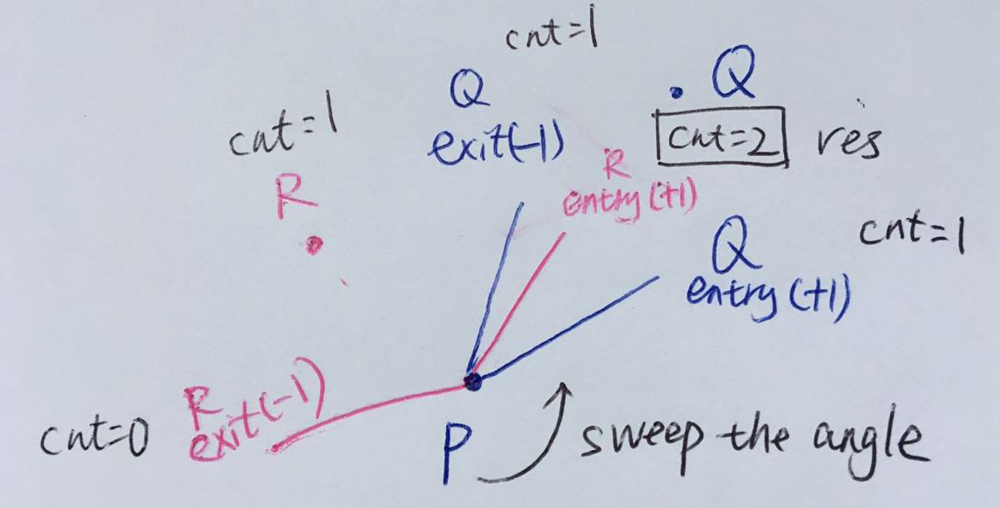 cnt=1
Q
exit(-1)
Q
cnt=2
res
cnt=1
R
R
entry(+1)
Q
entry(+1)
cnt=1
R
exit(-1)
cnt=0
P
sweep the angle